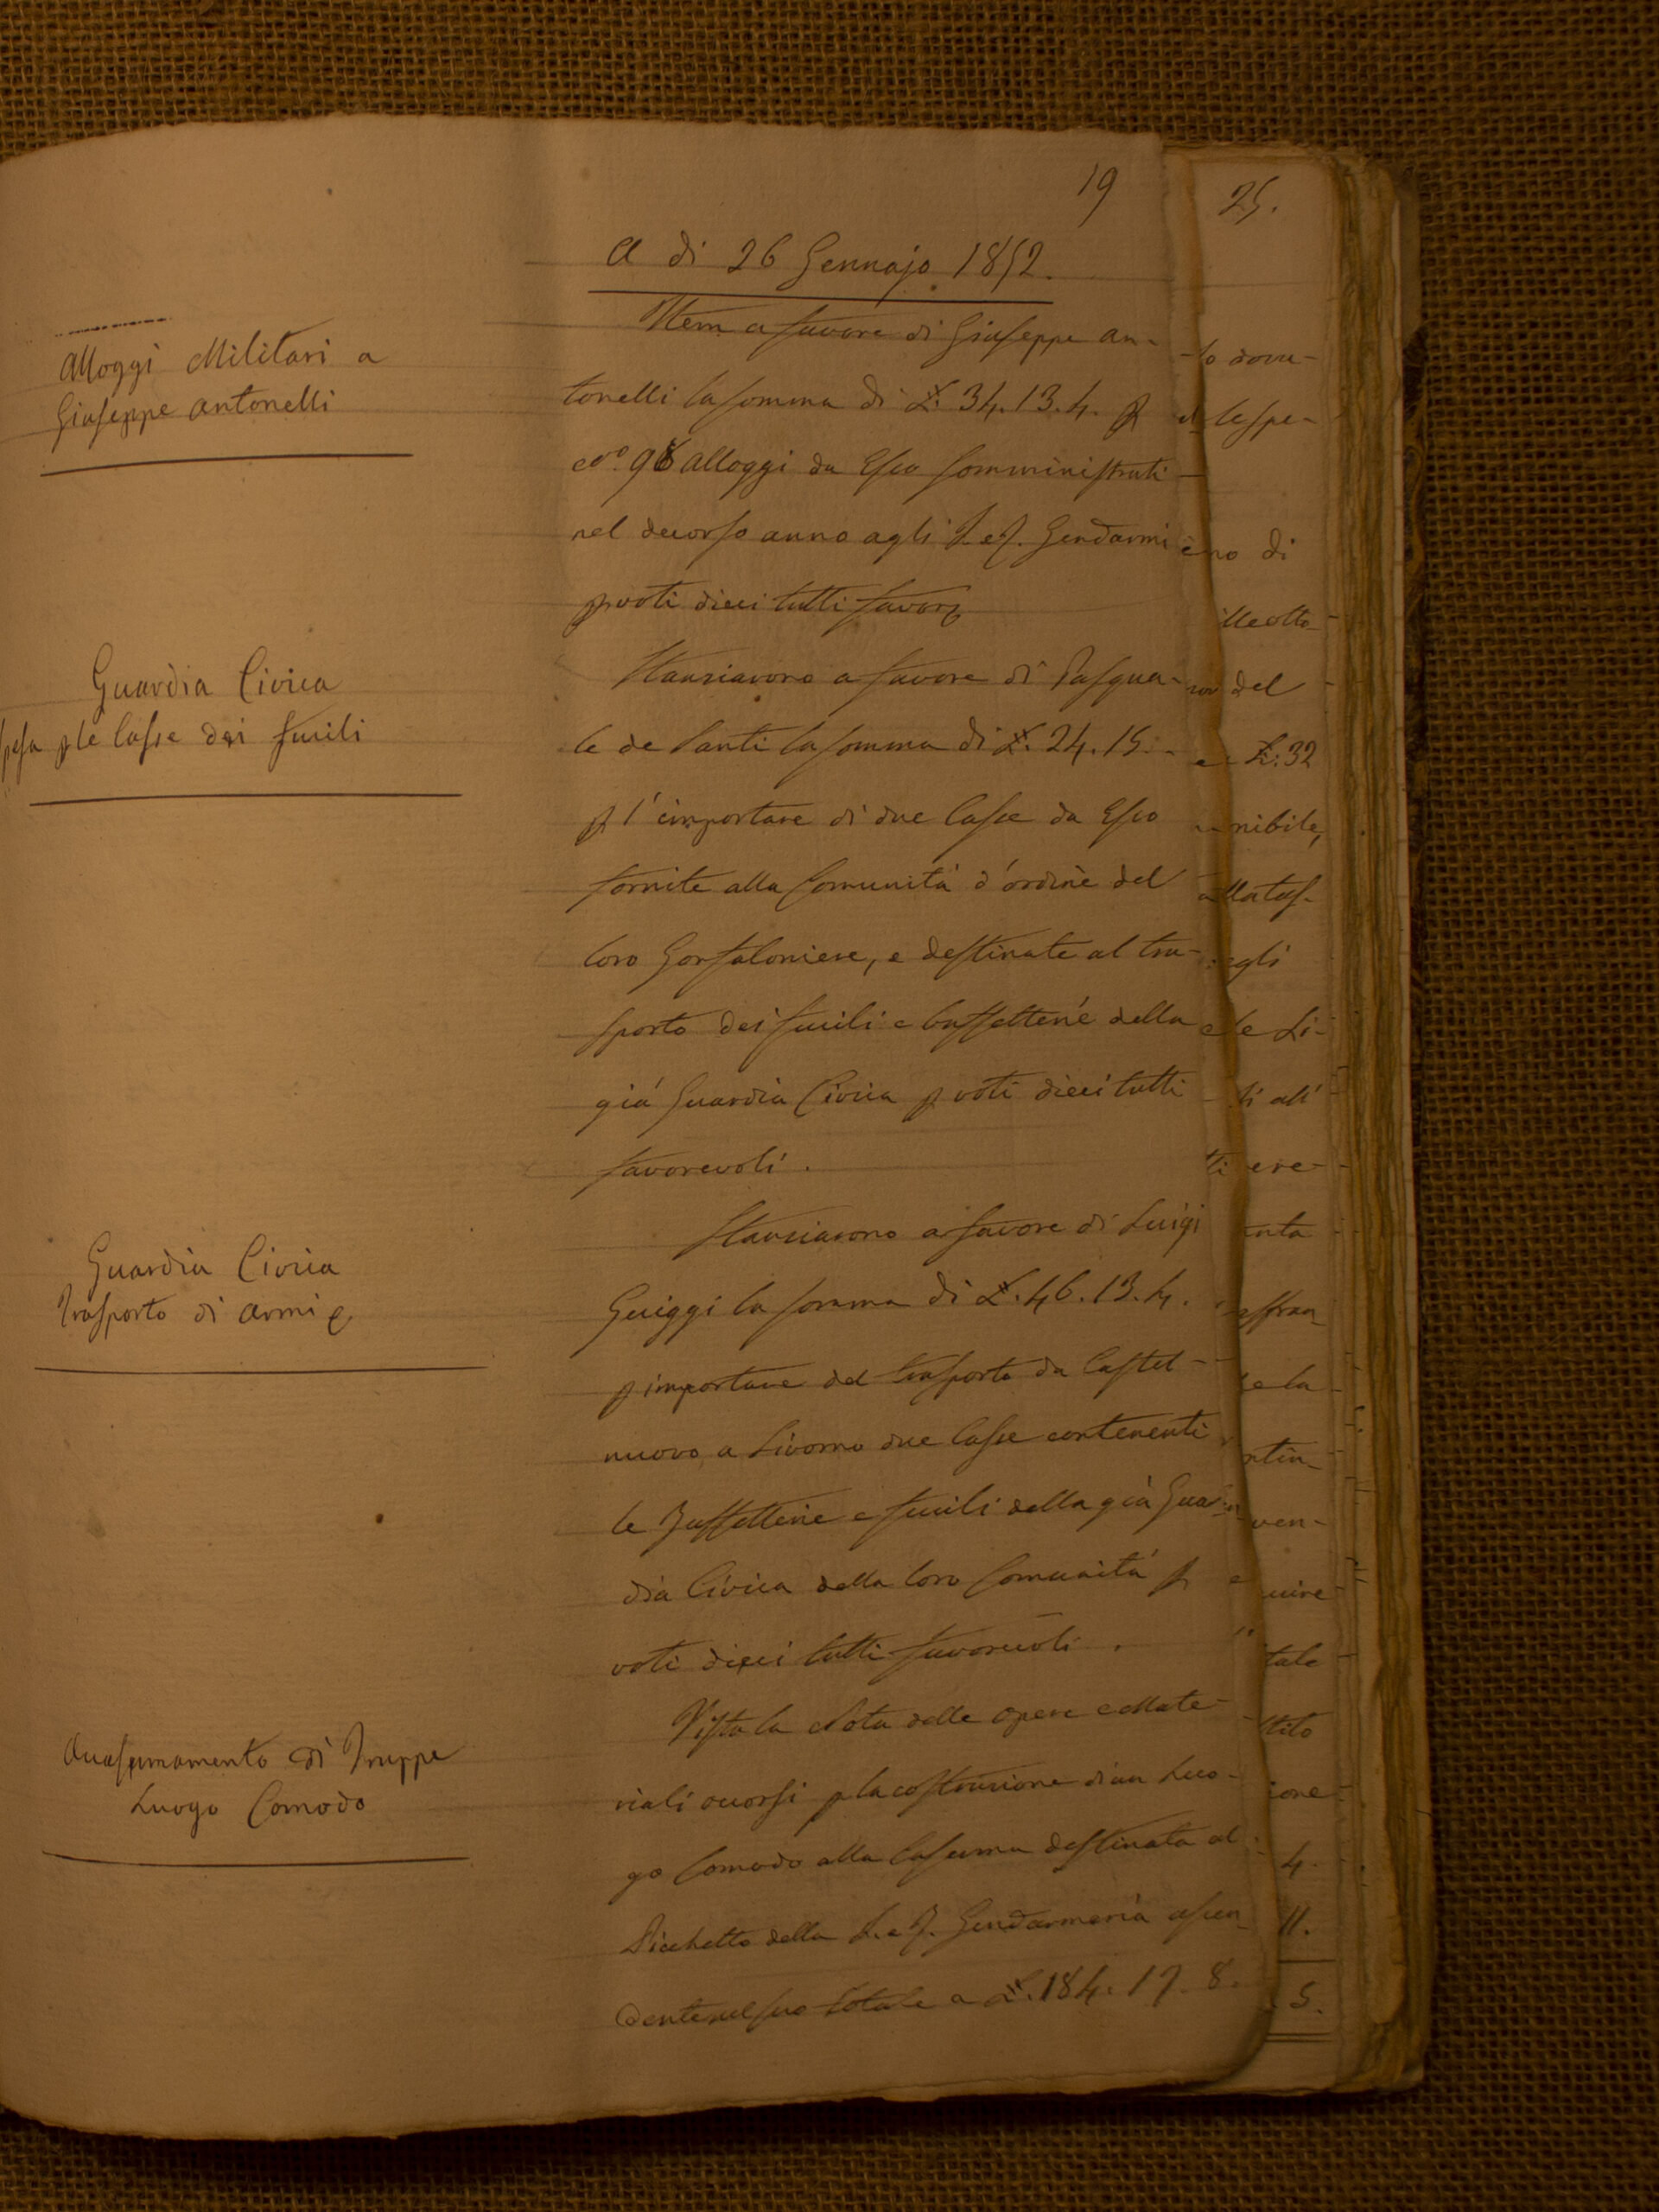 19
A di 26 Gennajo 1852.
Alloggi Militari a
Giuseppe Antonelli
Item a favore di Giuseppe An-
tonelli la somma di £. 34. 13. 4. p
N.° 98 alloggi da Esso somministrati
nel decorso anno agli I. e R. Gendarmi
p voti dieci tutti favor
Guardia Civica
spesa p le Casse dei fucili
Stanziarono a favore di Pasqua-
le de Santi la somma di £. 24. 15. -
p l'importare di due Casse da Esso
fornite alla Comunità d'ordine del
loro Gonfaloniere, e destinate al tra-
sporto dei fucili e buffetterie della
già Guardia Civica p voti dieci tutti
favorevoli.
Guardia Civica
Trasporto di armi
Stanziarono a favore di Luigi
Guiggi la somma di £. 46. 13. 4.
p importare del trasporto da Castel-
nuovo a Livorno due Casse contenenti
le Buffetterie e fucili della già Guar-
dia Civica della loro Comunità p
voti dieci tutti favorevoli.
Acquasermamento di Truppe
Luogo Comodo
Vista la Nota delle opere e mate-
riali occorsi p la costruzione di un Luo-
go Comodo alla Caserma destinata al
Picchetto della I. e R. Gendarmeria ascen
dente nel suo totale a £. 184. 17. 8.
25.
-to dovu-
le spe-
no di
ille otto-
del
£: 32
nibile,
egli
e le Li-
li all'
ti ere-
enta
e la
ven-
uire
tale
ione-
4.
11.
5.